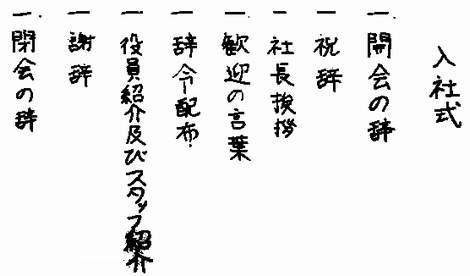 入社式
一. 開会の辞
一 祝辞
一 社長挨拶
一 歓迎の言葉
一 辞令配布
一 役員紹介及びスタッフ紹介
一 謝辞
一. 閉会の辞